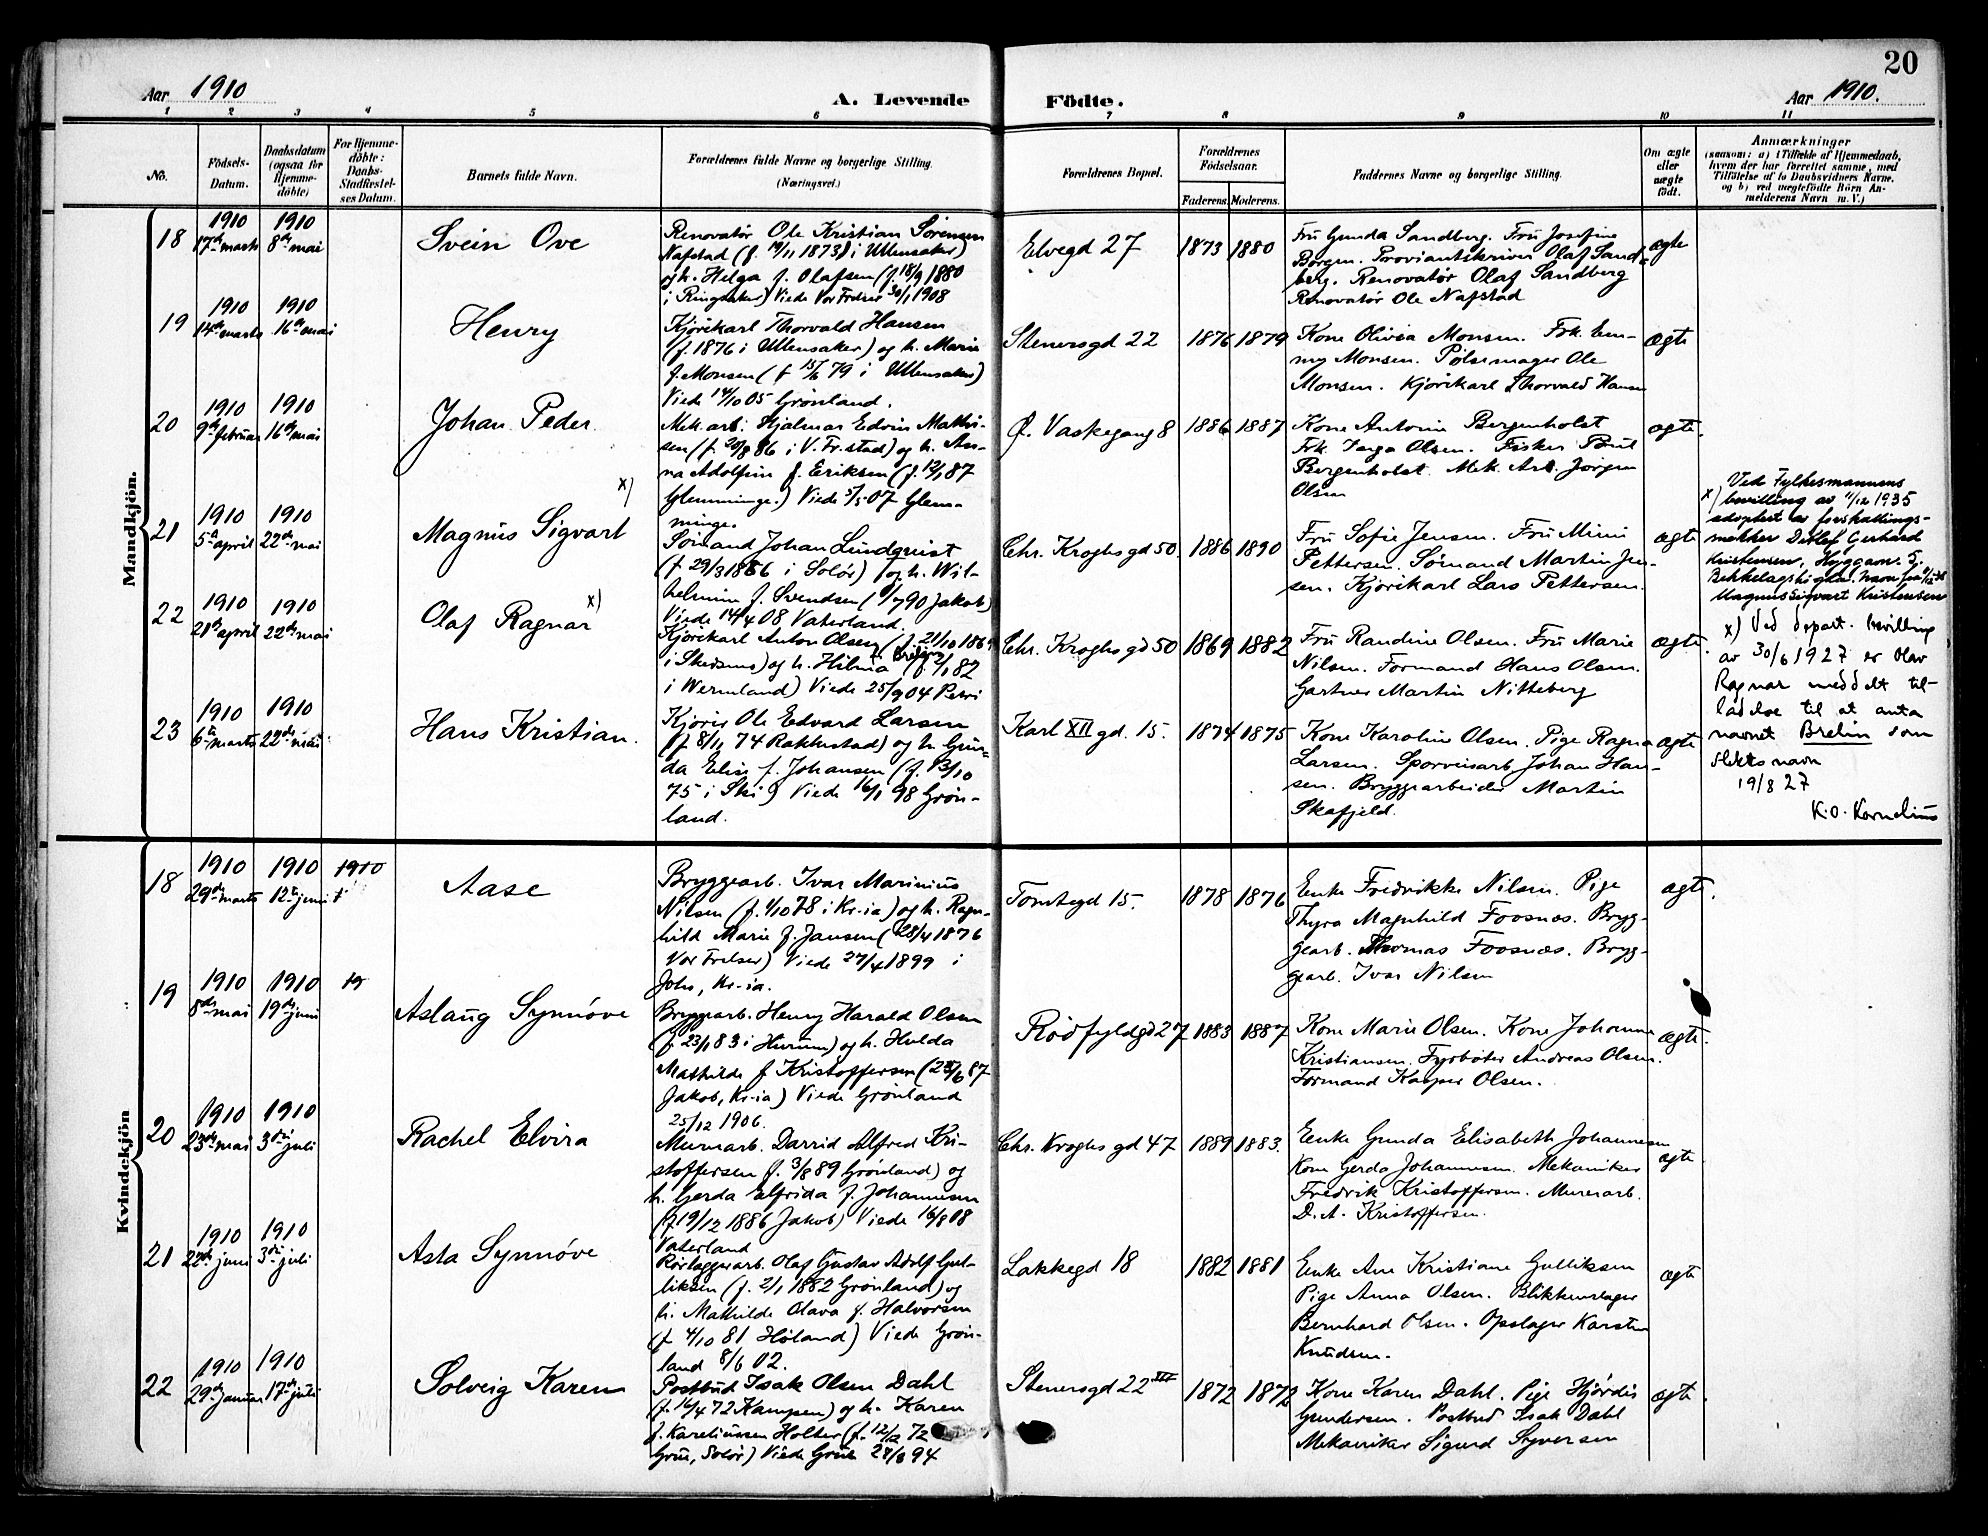 20
Aar 1910
A. Levende Födte.
Aar 1910.
1 2 3 4 5 6 7 8 9 10 11
No.
Födsels-Datum.
Daabsdatum (ogsaa for Hjemme-döbte)
For Hjemme-döbte: Daabs-Stadfæstel-ses Datum.
Barnets fulde Navn.
Forældrenes fulde Navne og borgerlige Stilling. (Næringsvei.)
Forældrenes Bopæl.
Forældrenes Födselsaar.
Faderens. Moderens.
Faddernes Navne og borgerlige Stilling.
Om ægte eller uægte födt.
Anmærkninger
(saasom: a) i Tilfælde af Hjemmedaab,
hvem der har forrettet samme, med
Tilföielse af to Daabsvidners Navne.
og b) ved uægtefödte Börn An-
melderens Navn m. V.)
Mandkjön.
18
1910 17de marts
1910 8de mai
Svein Ove
Renovatør Ole Kristian Sörensen
Nafstad (f. 19/11 1873 i Ullensaker)
og h. Helga f. Olafsen (f 18/9 1880
i Ringsaker) Viede Vor Frelser 30/1 1908
Elvegd 27
1873 1880
Fru Gunda Sandberg. Fru Josefine
Borgen. Proviantskriver Olaf Sand-
berg. Renovatør Olaf Sandberg
Renovatør Ole Nafstad
ægte
19
1910 14de marts
1910 16de mai
Henry
Kjørekarl Thorvald Hansen
(f. 1876 i Ullensaker) og h. Marie
f. Monsen (f 15/6 79 i Ullensaker)
Viede 14/10 05 Grönland.
Stenersgd 22
1876 1879
Kone Olivia Monsen. Frk. Em-
my Monsen. Pølsemager Ole
Monsen. Kjørekarl Thorvald Hansen
ægte
20
1910 9de februar
1910 16de mai
Johan Peder
Mek. arb. Hjalmar Edvin Mathi-
sen (f. 20/8 86 i V. Fr.stad) og h. An-
na Adolfine f. Eriksen (f. 12/1 87
Glemminge.) Viede 5/5 07 Glem-
minge.
Ø. Vaskegang 8
1886 1887
Kone Antonie Bergenholst
Frk. Inga Olsen. Fisker Poul
Bergenholst. Mek. Arb. Jørgen
Olsen
ægte.
21
1910 5te april
1910 22de mai
Magnus Sigvart x)
Sømand Johan Lundqvist
(f 29/3 1886 i Solør) og h. Wil-
helmine f. Svendsen (9/7 90 Jakob)
Viede 14/4 08 Vaterland.
Chr. Kroghs gd 50.
1886 1890
Fru Sofie Jensen. Fru Mimi
Pettersen. Sømand Martin Jen-
sen. Kjørekarl Lars Pettersen.
ægte
x) Ved Fylkesmannens
bevilling av 11/12 1935
adoptert av forskallings-
mekker Detlef Gerhard
Kristensen, Magnus Sigvart Kristensen
22
1910 21de april
1910 22de mai
Olaf Ragnar x)
Kjørekarl Anton Olsen (f. 21/10 1869
i Skedsmo) og h. Hilma f. Brelin (f 2/1 82
i Wermland) Viede 25/9 04 Petri
Chr. Kroghs gd 50
1869 1882
Fru Randine Olsen. Fru Marie
Nilsen. Formand Hans Olsen.
Gartner Martin Nitteberg
ægte.
x) Ved depart. bevilling
av 30/6 1927 er Olav
Ragnar meddelt til-
ladelse til at anta
navnet Brelin som
slektsnavn
19/8 27
K.O. Kornelius
23
1910 6te marts
1910 22de mai
Hans Kristian.
Kjører Ole Edvard Larsen
(f 8/11 74 Rakkestad) og h. Gun-
da Elise f. Johansen (f. 13/10
75 i Ski) Viede 16/1 98 Grön-
land.
Karl XII gd. 15.
1874 1875
Kone Karoline Olsen. Pige Ragna
Larsen. Sporveisarb. Johan Han-
sen. Bryggearbeider Martin
Skafjeld.
ægte
Kvindekjön
18
1910 29de marts
1910 12te juni
1910
Aase
Bryggearb. Ivar Marinius
Nilsen (f. 1/10 78 i Kr-ia) og h. Ragn-
hild Marie f. Jansen (28/4 1876
Vor Frelser) Viede 27/4 1899 i
Johs, Kr-ia.
Tomtegd 15.
1878 1876
Enke Fredrikke Nilsen. Pige
Thyra Magnhild Foosnæs. Bryg-
gearb. Thomas Foosnæs. Bryg-
gearb. Ivar Nilsen
ægte.
19
1910 8de mai
1910 19de juni
19
Aslaug Synnöve
Bryggarb. Henry Harald Olsen
(f 23/1 83 i Hurum) og h. Hulda
Mathilde f Kristoffersen (28/6 87
Jakob, Kr-ia) Viede Grönland
25/12 1906.
Rödfyldgd 27
1883 1887
Kone Marie Olsen. Kone Johanne
Kristiansen. Fyrbøter Andreas Olsen.
Formand Kasper Olsen.
ægte.
20
1910 23de mai
1910 3die juli
Rachel Elvira
Murerarb. David Alfred Kri-
stoffersen f. 3/8 89 Grönland) og
h. Gerda Elfrida f. Johannesen
(f 19/12 1886 Jakob) Viede 16/8 08
Vaterland
Chr. Kroghs gd 47
1889 1883.
Enke Gunda Elisabeth Johannesen
Kone Gerda Johannesen. Mekaniker
Fredrik Kristoffersen. Murerarb.
D. A. Kristoffersen.
ægte
21
1910 22de juni
1910 3die juli
Asta Synnöve
Rørlæggerarb. Olaf Gustav Adolf Gul-
liksen (f. 2/1 1882 Grönland) og
h. Mathilde Olava f. Halvorsen
(f 4/10 81 Höland) Viede Grön-
land 8/6 02.
Lakkegd 18
1882 1881
Enke Ane Kristiane Gulliksen
Pige Anna Olsen. Blikkenslager
Bernhard Olsen. Opslager Karsten
Knudsen.
ægte
22
1910 29de januar
1910 17de juli
Solveig Karen
Postbud Isak Olsen Dahl
(f. 16/4 72 Kampen) og h. Karen
f. Kareliussen Holter (f. 12/2 72
Grue, Solør) Viede Grue 28/6 94
Stenersgd 22 III
1872 1872
Kone Karen Dahl. Pige Hjørdis
Gundersen. Postbud Isak Dahl
Mekaniker Sigurd Syversen
ægte.